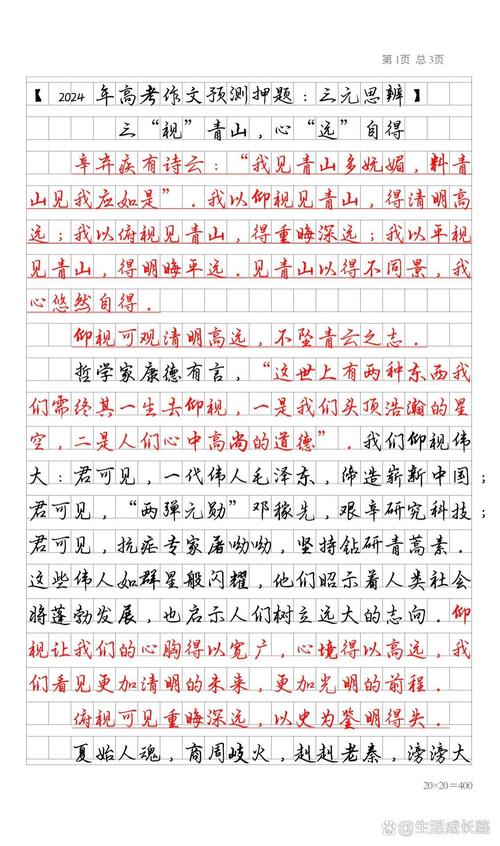 第1页 总3页
【 2024 年高考作文预测押题：三元思辨 】
三“视”青山，心“远”自得
辛弃疾有诗云：“我见青山多妩媚，料青
山见我应如是”．我以仰视见青山，得清明高
远；我以俯视见青山，得重晦深远；我以平视
见青山，得明晦平远．见青山以得不同景，我
心悠然自得．
仰视可观清明高远，不坠青云之志．
哲学家康德有言，“这世上有两种东西我
们需终其一生去仰视，一是我们头顶浩瀚的星
空，二是人们心中高尚的道德”．我们仰视伟
大：君可见，一代伟人毛泽东，缔造崭新中国；
君可见，“两弹元勋”邓稼先，艰辛研究科技；
君可见，抗症专家屠呦呦，坚持钻研青蒿素．
这些伟人如群星般闪耀，他们昭示着人类社会
将蓬勃发展，也启示人们树立远大的志向．仰
视让我们的心胸得以宽广，心境得以高远，我
们看见更加清明的未来，更加光明的前程．
俯视可见重晦深远，以史为鉴明得失．
夏始人魂，商周岐火，赳赳老秦，滂滂大
20×20=400
头条 @生活成长路